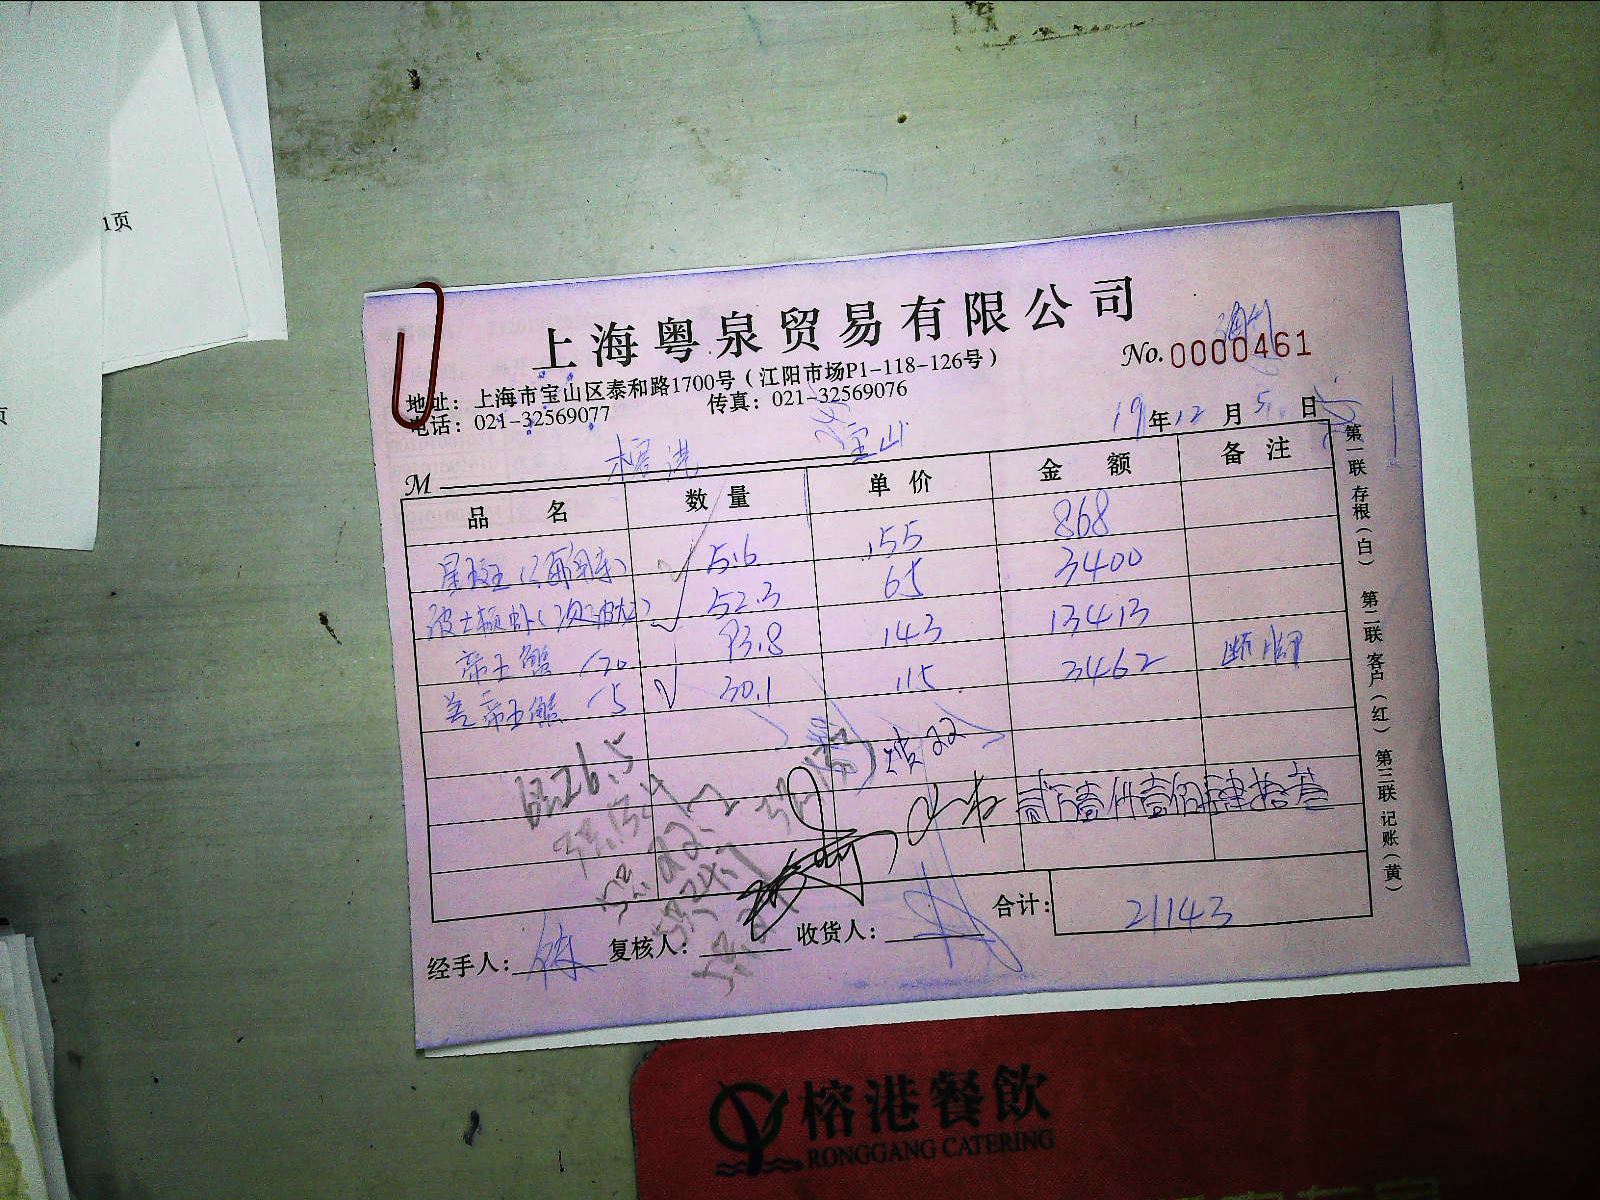 1页
页
上海粤泉贸易有限公司
No. 0000461
地址：上海市宝山区泰和路1700号（江阳市场P1-118-126号）
电话：021-32569077 传真：021-32569076
19年12月5日
M 榕港 宝山
品名 数量 单价 金额 备注
星斑 5.6 155 868
波士顿 52.3 65 3400
帝王蟹 120 93.8 143 13413
帝王蟹 15 30.1 115 3462
26.5
贰万壹仟壹佰肆拾叁
合计： 21143
经手人： 复核人： 收货人：
第一联 存根（白） 第二联 客户（红） 第三联 记账（黄）
榕港餐飲
RONGGANG CATERING